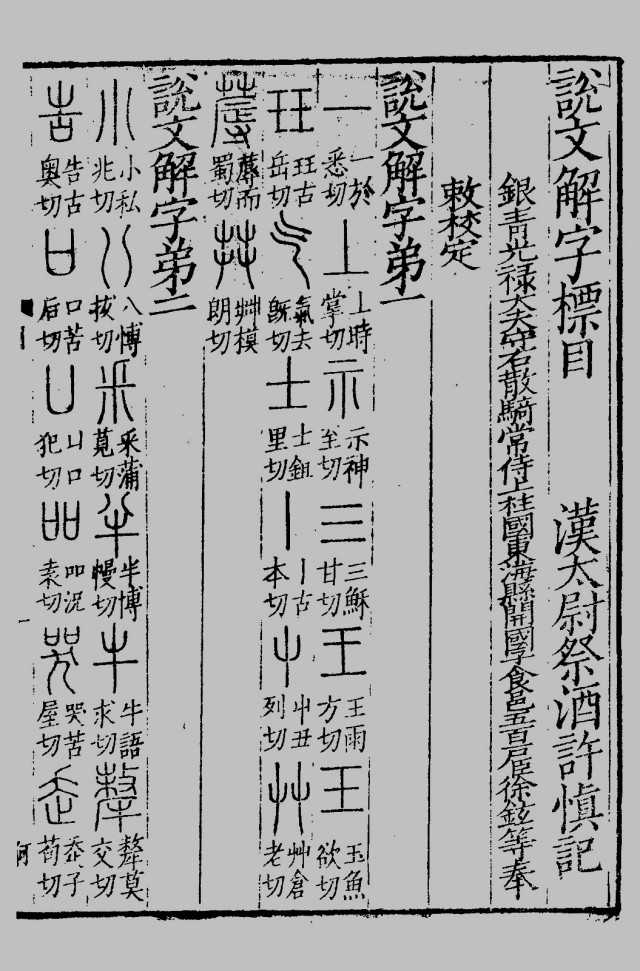 說文解字標目　漢太尉祭酒許慎記
銀青光祿大夫守右散騎常侍上柱國東海縣開國子食邑五百戶臣徐鉉等奉
敕校定
說文解字弟一
一 一於悉切 丄 丄時掌切 示 示神至切 三 三穌甘切 王 王雨方切 玉 玉魚欲切
玨 玨古岳切 气 氣去旣切 士 士鉏里切 丨 丨古本切 屮 屮丑列切 艸 艸倉老切
蓐 蓐而蜀切 茻 茻模朗切
說文解字弟二
小 小私兆切 八 八博拔切 釆 釆蒲莧切 半 半博慢切 牛 牛語求切 犛 犛莫交切
告 告古奧切 口 口苦后切 凵 凵口犯切 吅 吅況袁切 哭 哭苦屋切 走 走子苟切